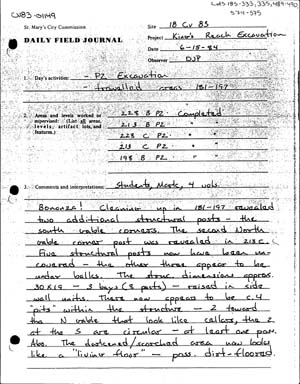 CV83-01149
CW5 185-333, 335, 489-490
574-575
St. Mary's City Commission
DAILY FIELD JOURNAL
Site 18 Cv 83
Project King's Reach Excavation
Date 6-15-84
Observer DJP
1. Day's activities:
- PZ Excavation
- trowelled areas 181-197
2. Areas and levels worked or supervised: (List all areas, levels, artifact lots, and features.)
228 B PZ - Completed
213 B PZ - "
228 C PZ - "
213 C PZ - "
198 B PZ - "
3. Comments and interpretations: Students, Mark, 4 vols.
Bonanza! Cleaning up in 181-197 revealed
two additional structural posts - the
south gable corners. The second North
gable corner post was revealed in 213 C.
Five structural posts now have been un-
covered - the other three appear to be
under balks. The struc. dimensions approx.
30 X 19 - 3 bays (8 posts) - raised in side
wall units. There now appear to be c. 4
"pits" within the structure - 2 toward
the N gable that look like cellars, the 2
at the S are circular - at least one poss.
Also. The darkened/scorched area now looks
like a "living floor" - poss. dirt-floored.